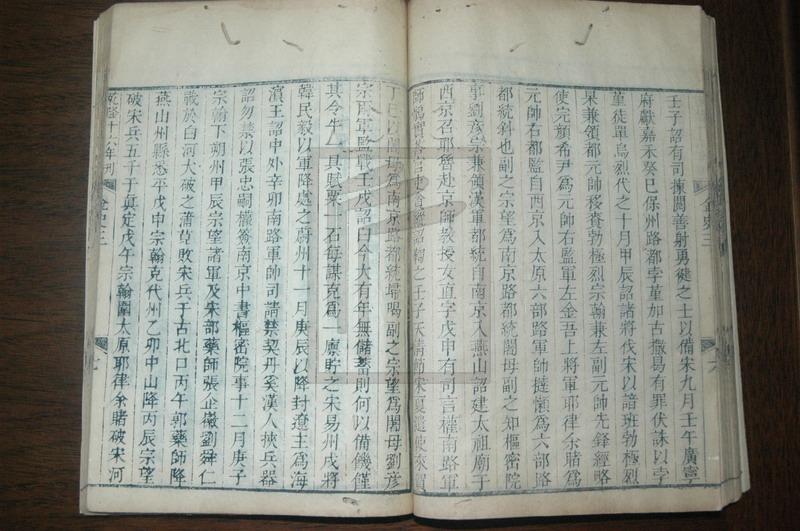 壬子詔有司揀閱善射勇健之士以備宋九月壬午廣寧
府獻嘉禾癸巳保州路都孛菫加古撒曷有罪伏誅以孛
菫徒單烏烈代之十月甲辰詔諸將伐宋以諳班勃極烈
杲兼領都元帥移賚勃極烈宗翰兼左副元帥先鋒經略
使完顏希尹爲元帥右監軍左金吾上將軍耶律余睹爲
元帥右都監自西京入太原六部路軍帥撻懶爲六部路
都統斜也副之宗望爲南京路都統闍母副之知樞密院
事劉彥宗兼領漢軍都統自南京入燕山詔建太祖廟于
西京召耶魯赴京師教授女直字戊申有司言權南路軍
帥鶻實荅 之壬子天清節宋夏遣使來賀
丁巳以闍母爲南京路都統埽喝副之宗望爲闍母劉彥
宗兩軍監戰壬戌詔曰今大有年無儲蓄則何以備饑饉
其令牛一具賦粟一石每謀克爲一廩貯之宋易州戍將
韓民毅以軍降處之蔚州十一月庚辰以降封遼主爲海
濱王詔中外辛卯南路軍帥司請禁契丹奚漢人挾兵器
詔勿禁以張忠嗣權簽南京中書樞密院事十二月庚子
宗翰下朔州甲辰宗望諸軍及宋郭藥師張企徽劉舜仁
戰於白河大破之蒲莧敗宋兵于古北口丙午郭藥師降
燕山州縣悉平戊申宗翰克代州乙卯中山降丙辰宗望
破宋兵五千于真定戊午宗翰圍太原耶律余睹破宋河
乾隆十六年刊
金史三
六
金史三
七